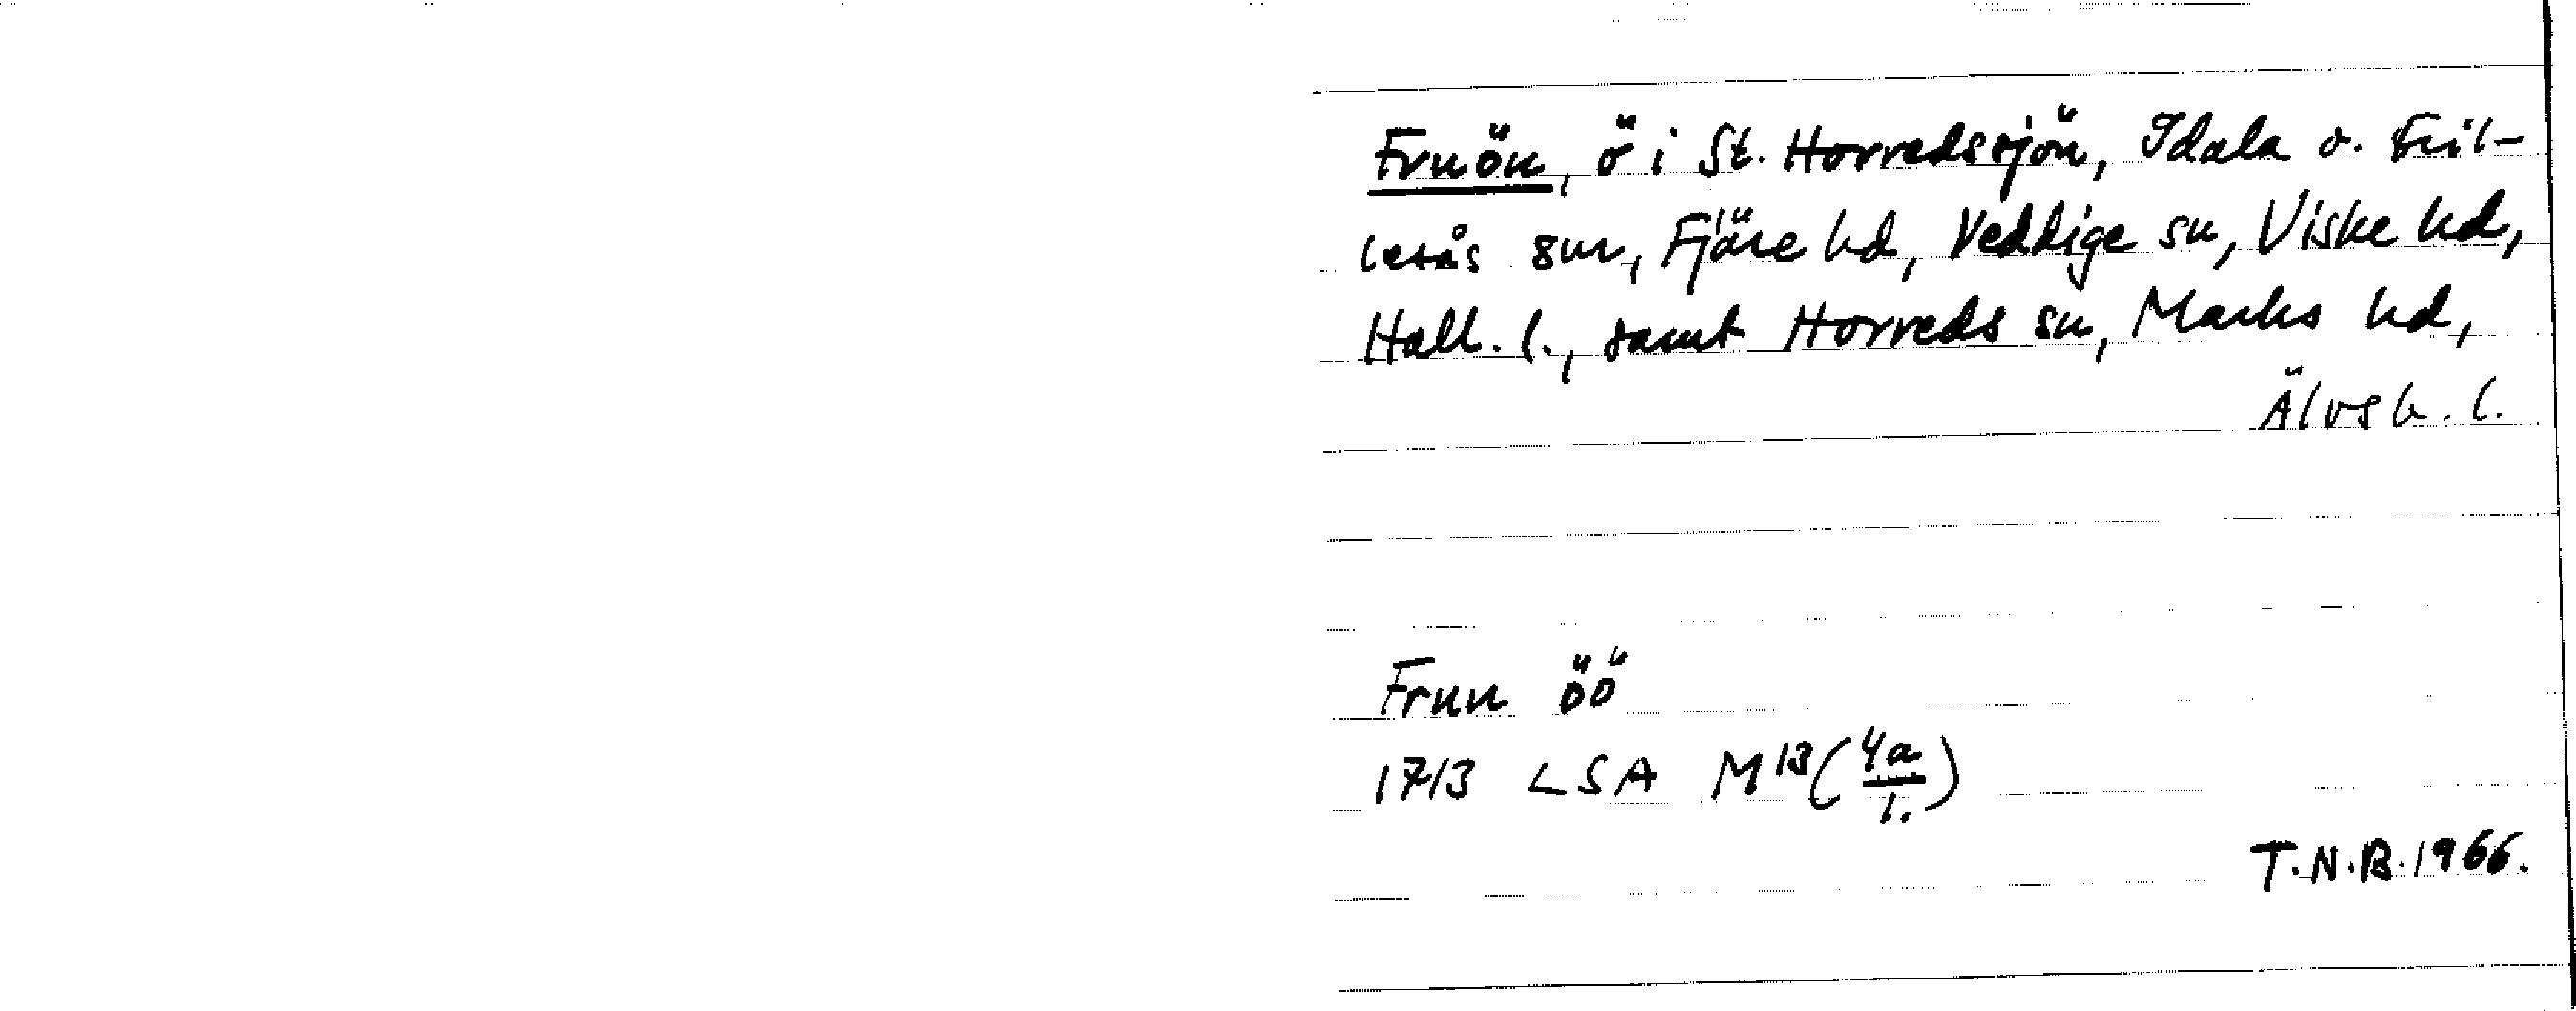 Fruön, ö i St. Horredssjön, Idala o. Fril-
lesås snr, Fjäre hd, Veddige sn, Viske hd,
Hall. l., samt Horreds sn, Marks hd,
Älvsb. l.
Frun öö
1713 LSA M13(4a/1.)
T.N.B. 1966.